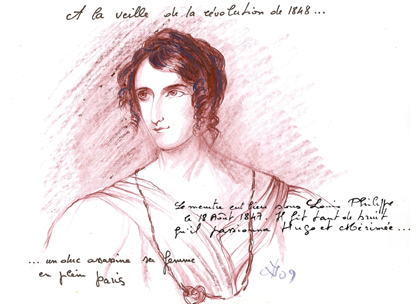 A la veille de la révolution de 1848...
Le meurtre eut lieu sous Louis Philippe
le 18 Août 1847. Il fit tant de bruit
qu'il passionna Hugo et Mérimée...
... un duc assassine sa femme
en plein Paris
09